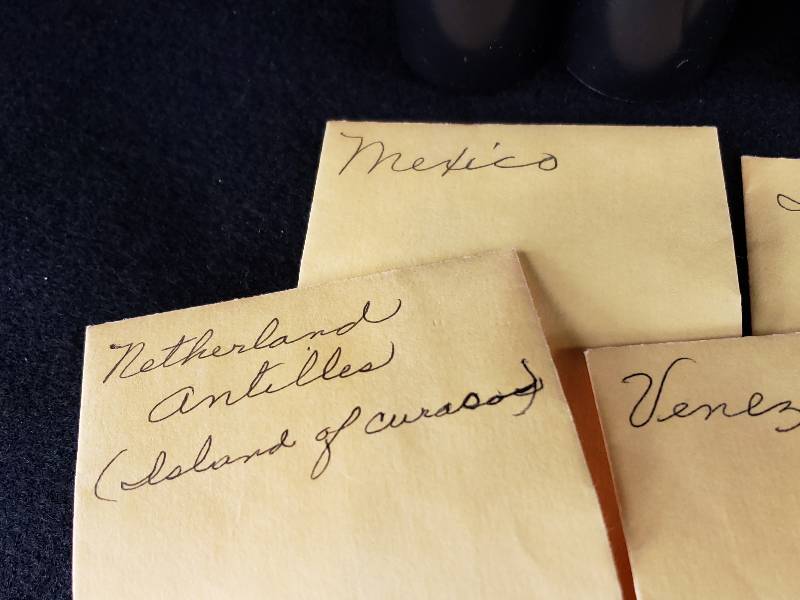 Mexico
Netherland
Antilles
(Island of curasos)
Venez